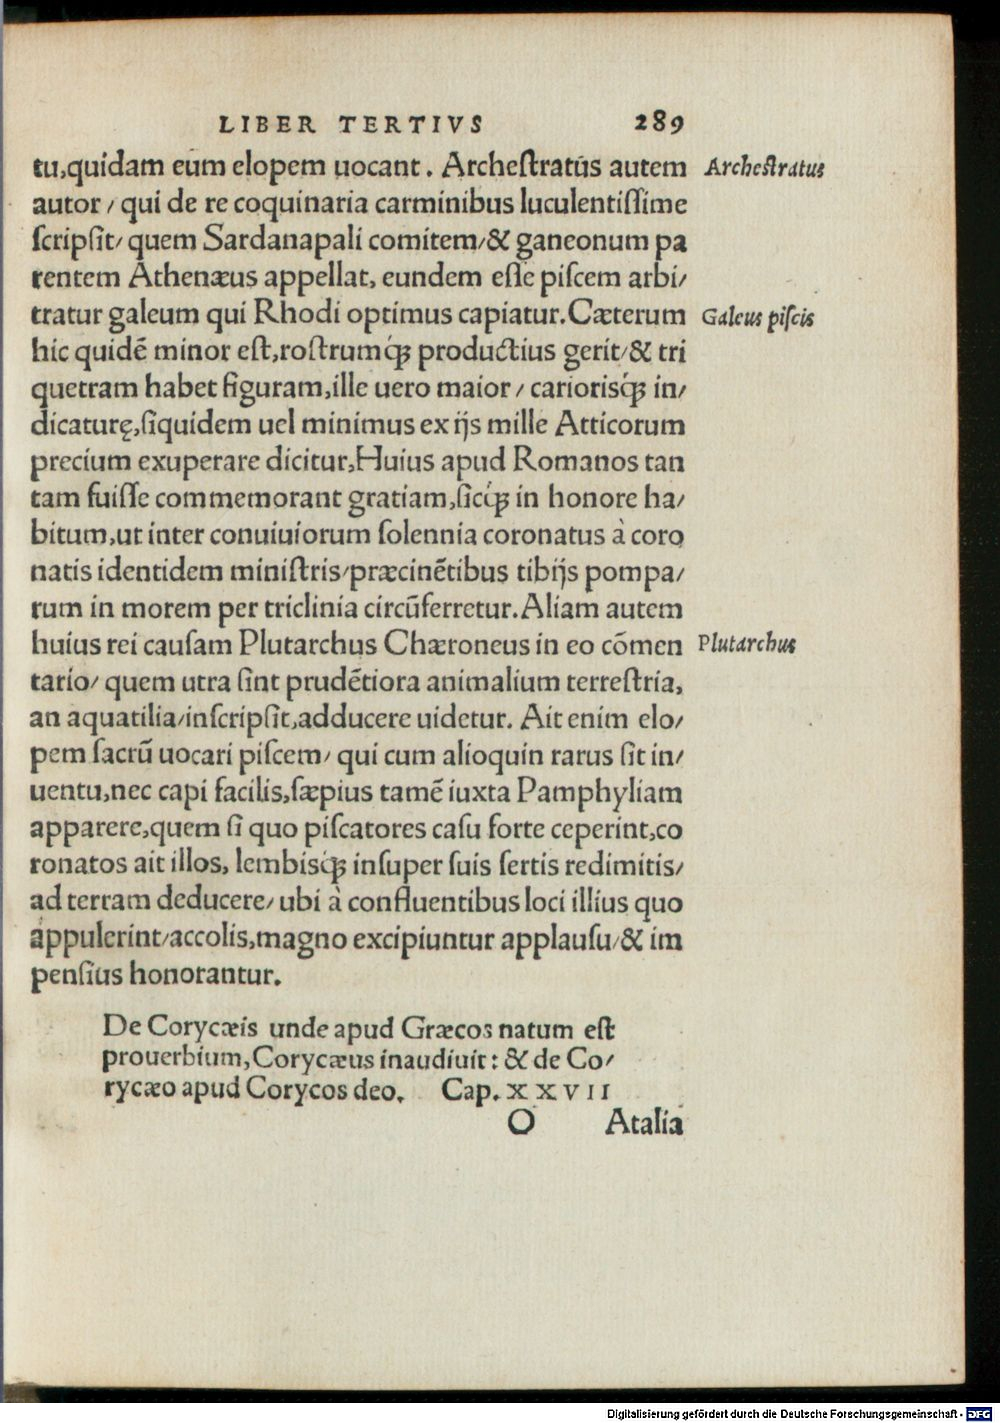 LIBER TERTIVS 289
tu,quidam eum elopem uocant. Archeſtratus autem Archeſtratus
autor / qui de re coquinaria carminibus luculentiſſime
ſcripſit/ quem Sardanapali comitem/& ganeonum pa
rentem Athenæus appellat, eundem eſſe piſcem arbi/
tratur galeum qui Rhodi optimus capiatur.Cæterum Galeus piſcis
hic quidē minor eſt,roſtrumq́ꝫ productius gerit/& tri
quetram habet figuram,ille uero maior / cariorisq́ꝫ in/
dicaturę,ſiquidem uel minimus ex ijs mille Atticorum
precium exuperare dicitur,Huius apud Romanos tan
tam fuiſſe commemorant gratiam,ſicq́ꝫ in honore ha/
bitum,ut inter conuiuiorum ſolennia coronatus à coro
natis identidem miniſtris/præcinētibus tibijs pompa/
rum in morem per triclinia circūferretur.Aliam autem
huius rei cauſam Plutarchus Chæroneus in eo cōmen Plutarchus
tario/ quem utra ſint prudētiora animalium terreſtria,
an aquatilia/inſcripſit,adducere uidetur. Ait enim elo/
pem ſacrū uocari piſcem/ qui cum alioquin rarus ſit in/
uentu,nec capi facilis,ſæpius tamē iuxta Pamphyliam
apparere,quem ſi quo piſcatores caſu forte ceperint,co
ronatos ait illos, lembisq́ꝫ inſuper ſuis ſertis redimitis/
ad terram deducere/ ubi à confluentibus loci illius quo
appulerint/accolis,magno excipiuntur applauſu/& im
penſius honorantur.
De Corycæis unde apud Græcos natum eſt
prouerbium,Corycæus inaudiuit: & de Co/
rycæo apud Corycos deo. Cap. XXVII
O Atalia
Digitalisierung gefördert durch die Deutsche Forschungsgemeinschaft - DFG